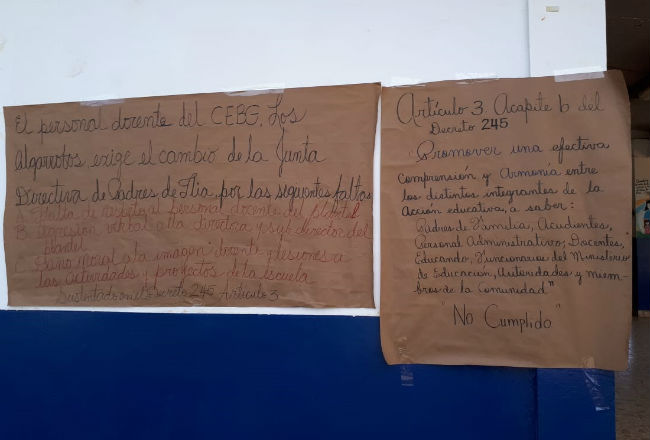 El personal docente del CEBG. Los
Algarrobos, exige el cambio de la Junta
Directiva de Padres de Flia, por las siguientes faltas
A. Falta de respeto al personal docente del plantel
B. Agresión verbal a la directora y sub director del
plantel
C. Daño moral a la imagen docente y lesiones a
las actividades y proyectos de la escuela
Sustentado en el Decreto 245 Artículo 3
Artículo 3. Acapite b del
Decreto 245
"Promover una efectiva
comprensión y Armonía entre
los distintos integrantes de la
acción educativa, a saber:
Padres de Familia, Acudientes,
Personal Administrativo, Docentes,
Educando, Funcionarios del Ministerio
de Educación, Autoridades y miem-
bros de la Comunidad"
"No Cumplido"